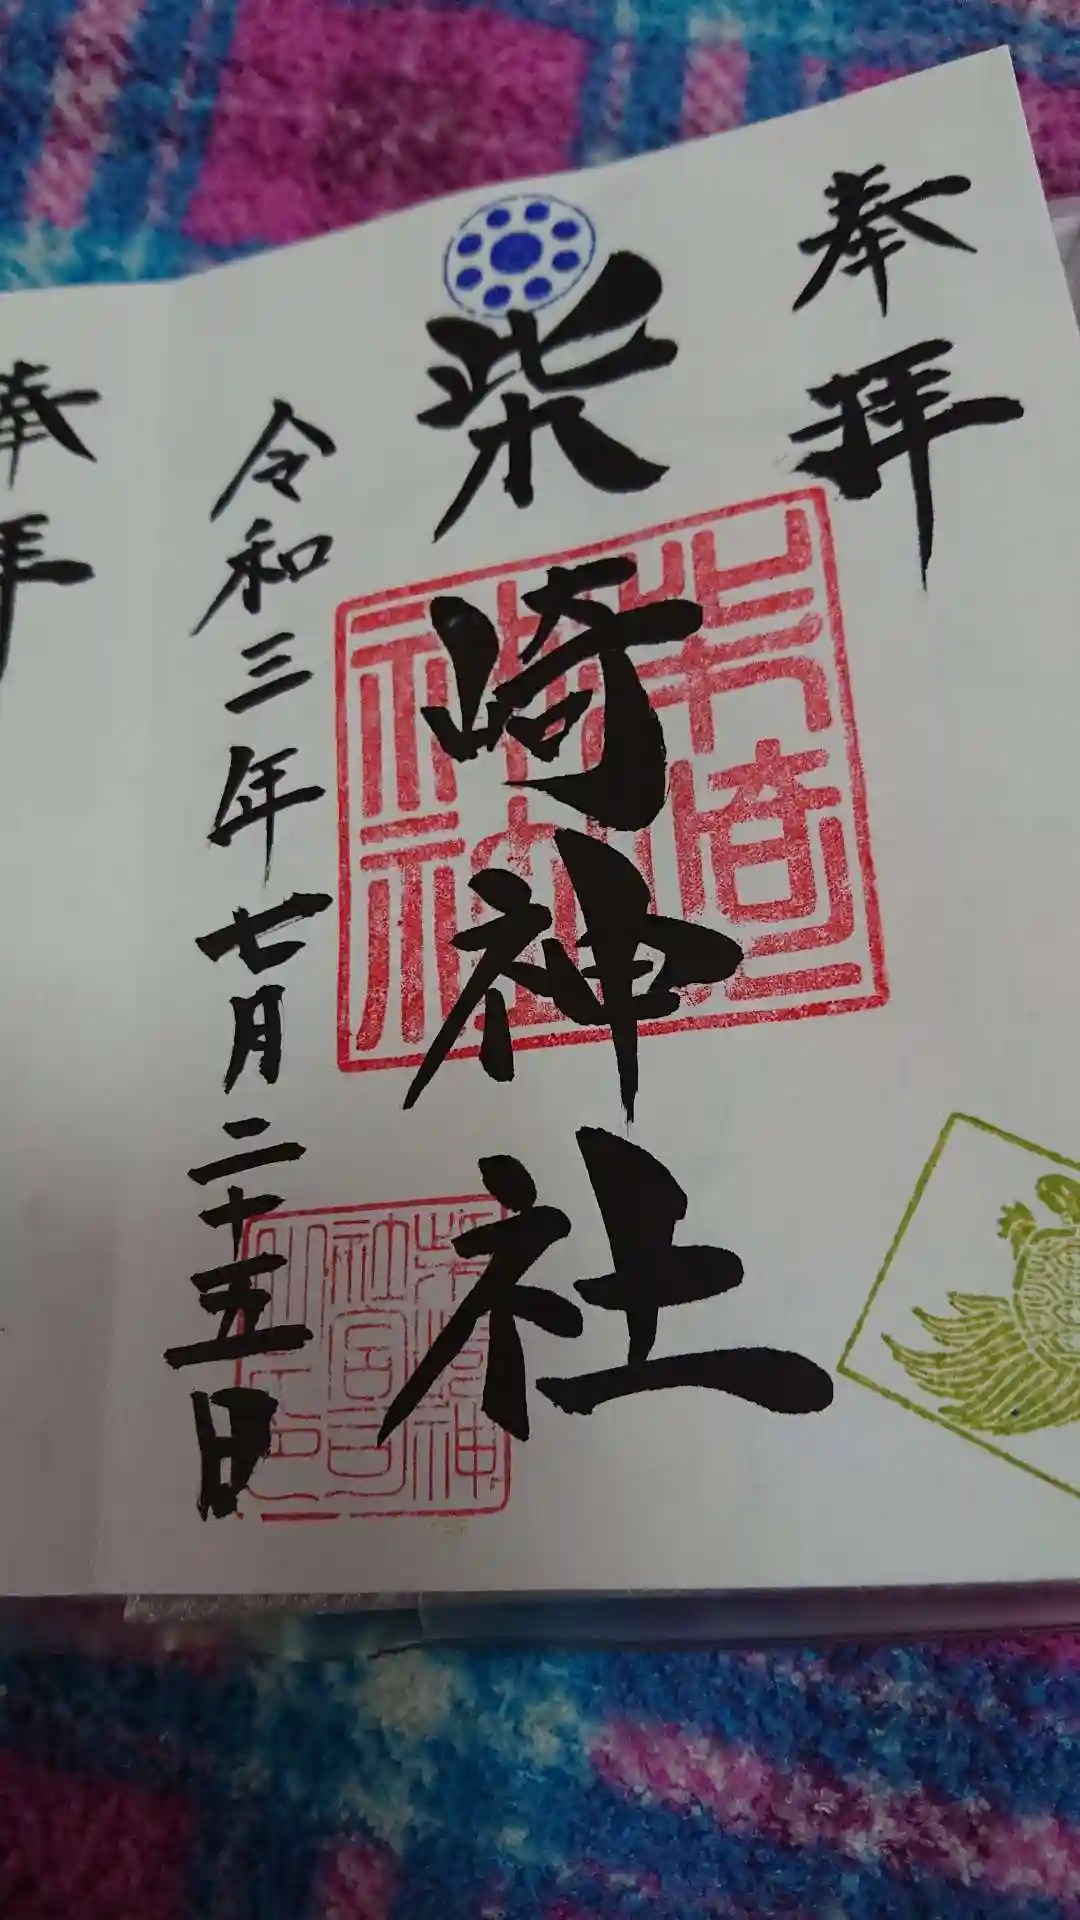 奉拝
柴崎神社
令和三年七月二十五日
柴崎神社
柴崎神社宮司之印
奉拝